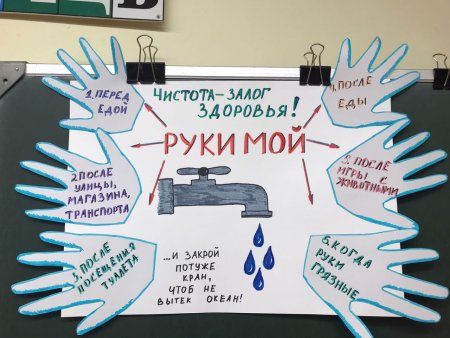 ЧИСТОТА–ЗАЛОГ
ЗДОРОВЬЯ!
РУКИ МОЙ
1. ПЕРЕД
ЕДОЙ
2 ПОСЛЕ
УЛИЦЫ,
МАГАЗИНА,
ТРАНСПОРТА
3. ПОСЛЕ
ПОСЕЩЕНИЯ
ТУАЛЕТА
4. ПОСЛЕ
ЕДЫ
5. ПОСЛЕ
ИГРЫ С
ЖИВОТНЫМИ
6. КОГДА
РУКИ
ГРЯЗНЫЕ
...И ЗАКРОЙ
ПОТУЖЕ
КРАН,
ЧТОБ НЕ
ВЫТЕК ОКЕАН!